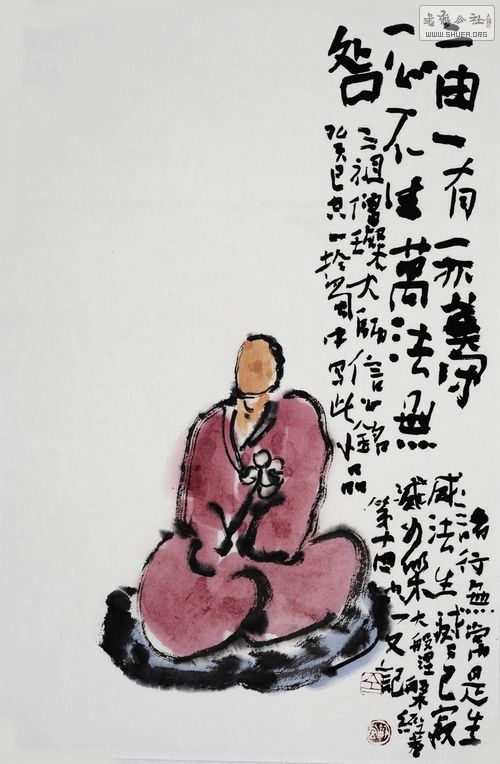 書藝公社
WWW.SHUFA.ORG
二由一有一亦莫守
一心不生萬法無
咎
三祖僧璨大師信心銘
癸巳一於蜀中寫此小品
諸行無常是生
滅法生滅滅已寂
滅为樂 大般涅槃經卷
第十四 一又記